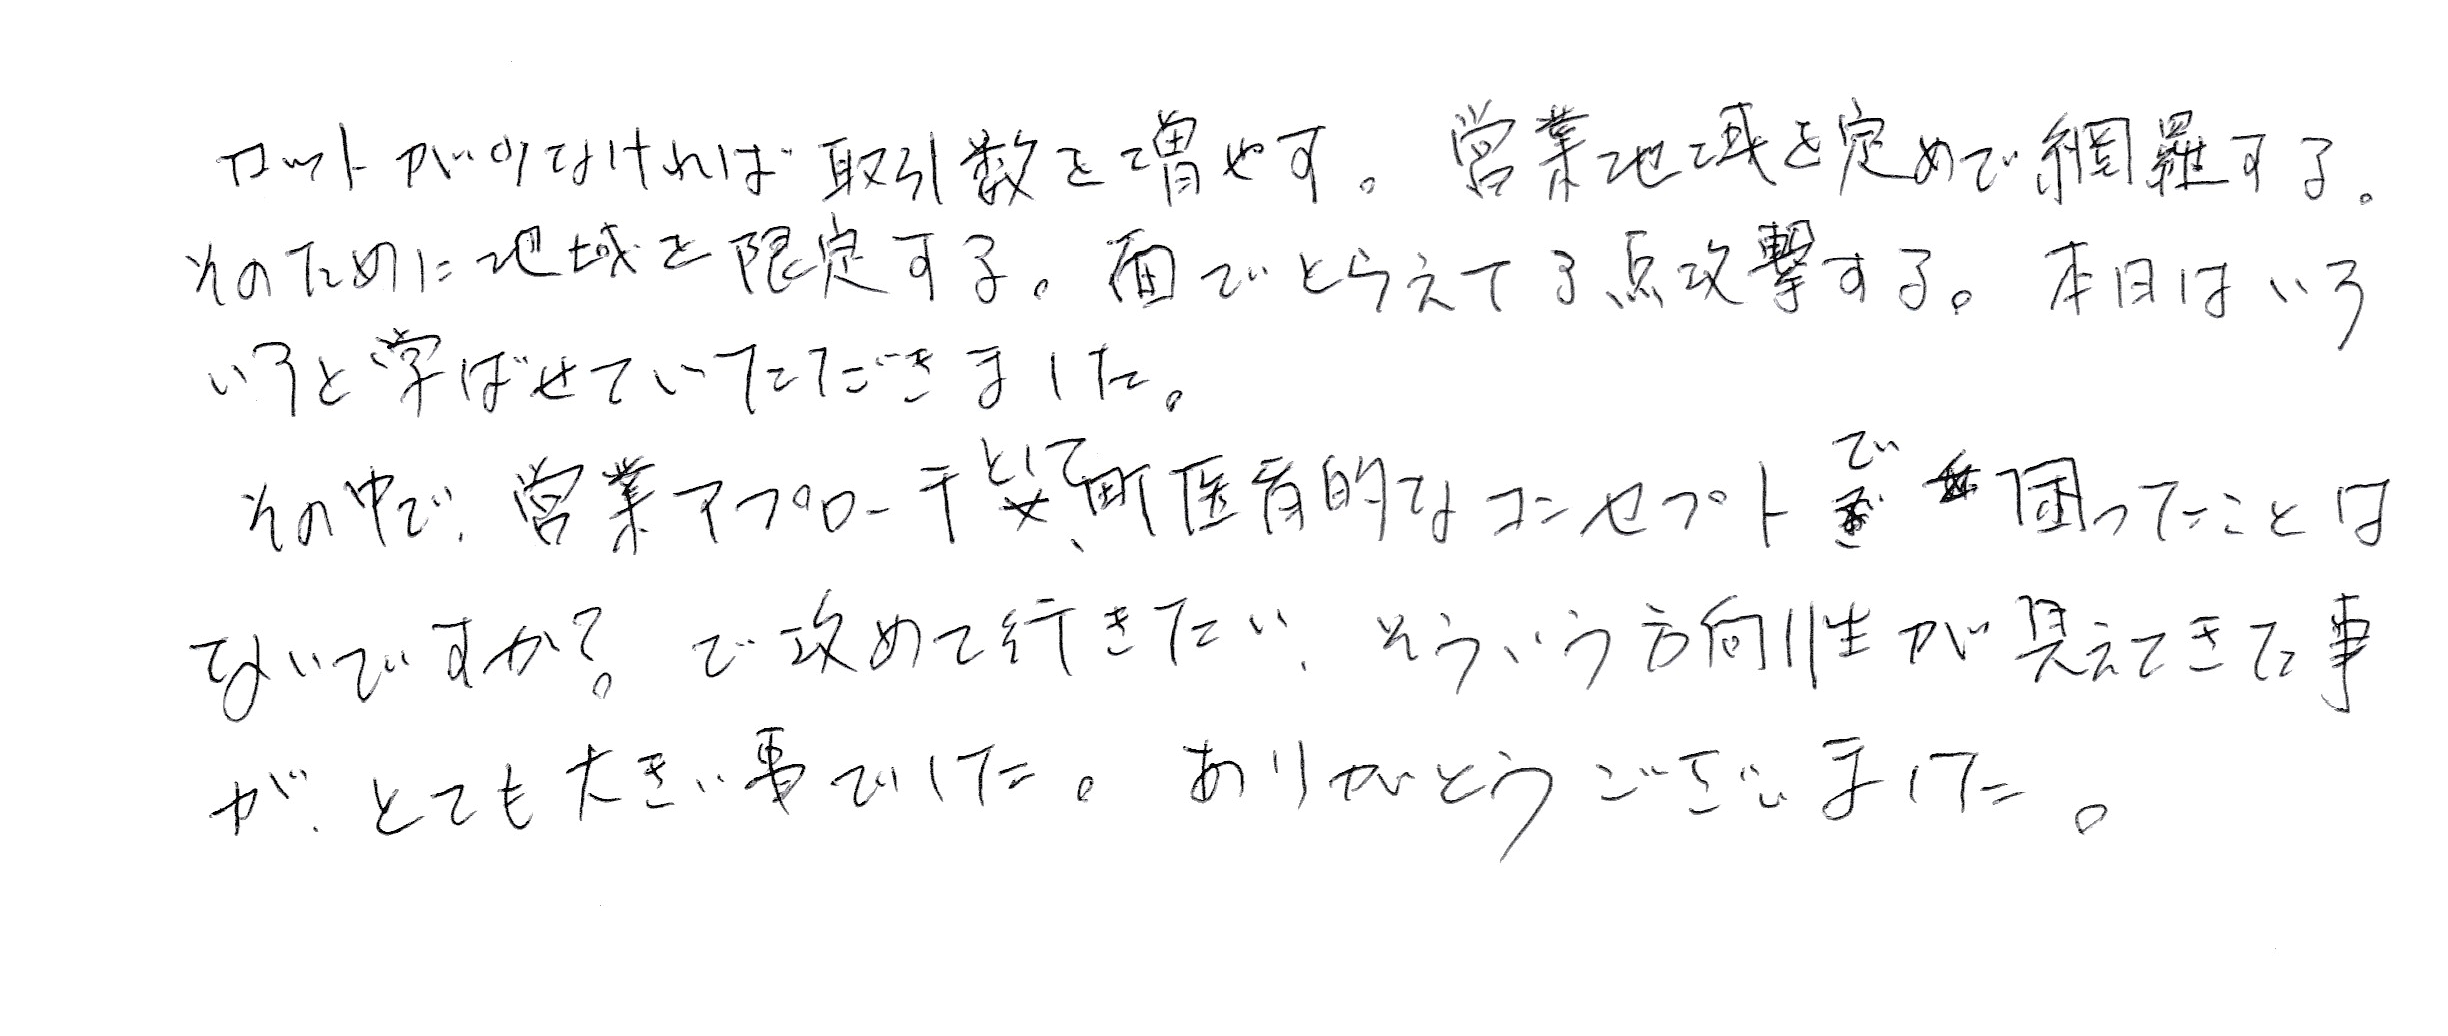 ロットが少なければ取引数を増やす。営業地域を定めて網羅する。
そのために地域を限定する。面でとらえてる点攻撃する。本日はいろ
いろと学ばせていただきました。
その中で、営業アプローチとして、町医者的なコンセプトで困ったことは
ないですか?。で攻めて行きたい、そういう方向性が見えてきた事
が、とても大きい事でした。ありがとうございました。